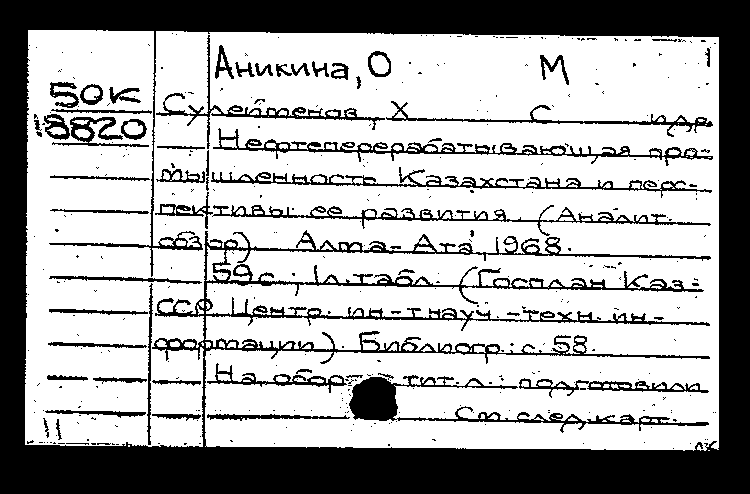 Аникина, О М 1
50К
18820
Сулейменов, Х С и др
Нефтеперерабатывающая про-
мышленность Казахстана и перс-
пективы ее развития. (Аналит.
обзор). Алма-Ата, 1968.
59 с; 1 л. табл. (Госплан Каз-
ССР Центр. ин-т науч.-техн. ин-
формации). Библиогр.: с. 58.
На оборо тит. л.: подготовили
См. след. карт.
11